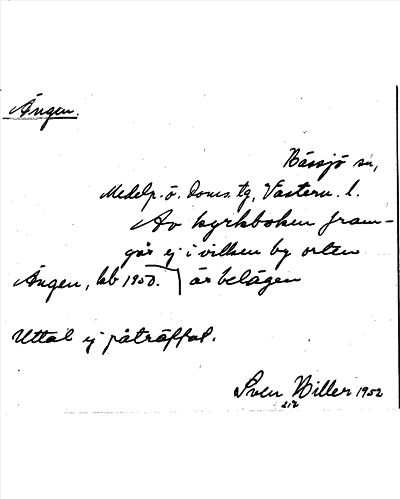 Ängen.
Hässjö sn,
Medelp. ö. Doms. tg, Västern. l.
Av kyrkboken fram-
går ej i vilken by orten
Ängen, kb 1950. är belägen
Uttal ej påträffat.
Sven Hiller 1952